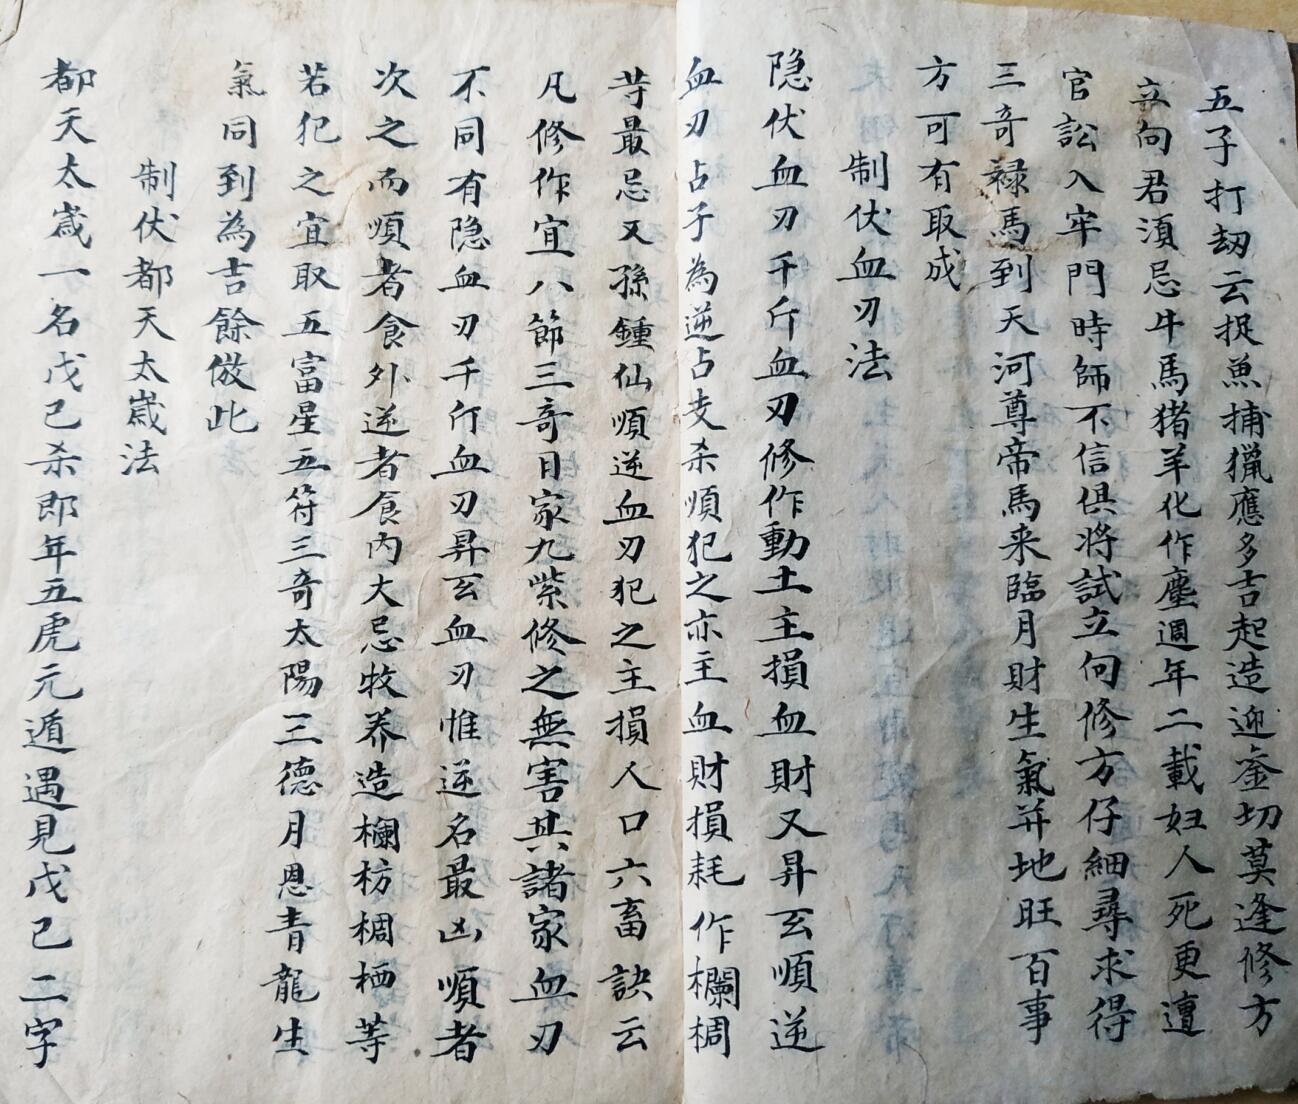 五子打刼云捉魚捕獵應多吉起造迎金切莫逢修方
立向君須忌牛馬猪羊化作塵週年二載妇人死更遭
官訟入牢門時師不信俱將試立向修方仔細尋求得
三奇禄馬到天河尊帝馬来臨月財生氣并地旺百事
方可有取成
制伏血刃法
隐伏血刃千斤血刃修作動土主損血財又昇玄順逆
血刃占子為逆占支杀順犯之亦主血財損耗作欄椆
䒭最忌又孫鍾仙順逆血刃犯之主損人口六畜訣云
凡修作宜八節三奇日家九紫修之無害其諸家血刃
不同有隐血刃千斤血刃昇玄血刃惟逆名最凶順者
次之而順者食外逆者食内大忌牧养造欄枋椆栖等
若犯之宜取五富星五符三奇太陽三德月恩青龍生
氣同到為吉餘倣此
制伏都天太嵗法
都天太嵗一名戊己杀即年五虎元遁遇見戊己二字